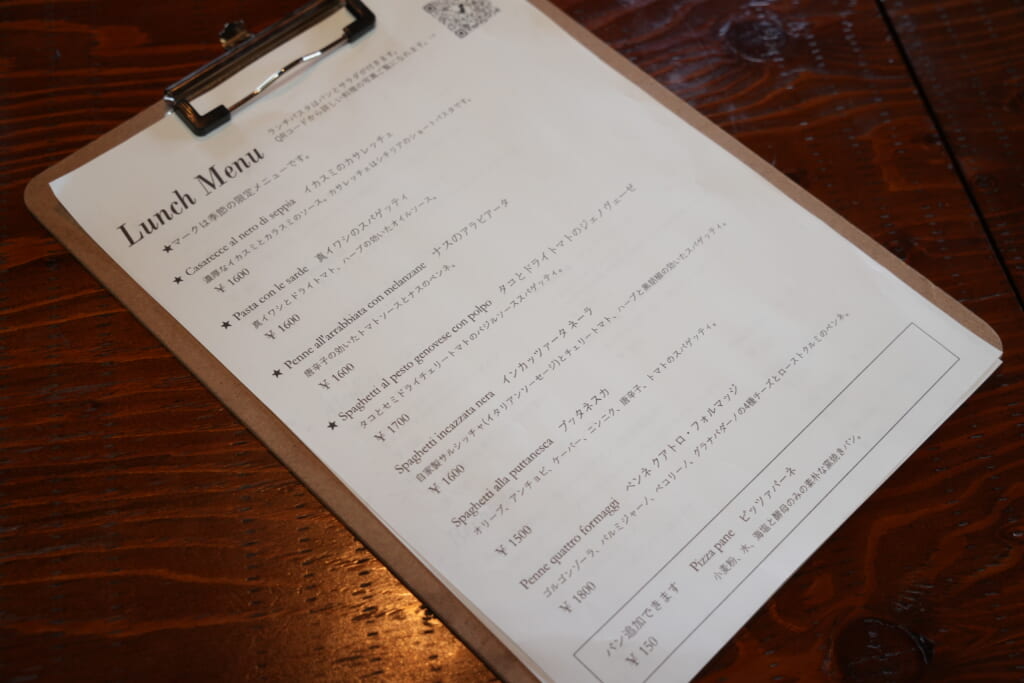 ランチパスタはパンとサラダが付きます。
QRコードから詳しい料理の写真ご覧になれます。→
Lunch Menu
★マークは季節の限定メニューです。
★ Casarecce al nero di seppia イカスミのカサレッチェ
濃厚なイカスミとカラスミのソース。カサレッチェはシチリアのショートパスタです。
¥ 1600
★ Pasta con le sarde 真イワシのスパゲッティ
真イワシとドライトマト、ハーブの効いたオイルソース。
¥ 1600
★ Penne all'arrabbiata con melanzane ナスのアラビアータ
唐辛子の効いたトマトソースとナスのペンネ。
¥ 1600
★ Spaghetti al pesto genovese con polpo タコとドライトマトのジェノヴェーゼ
タコとセミドライチェリートマトのバジルソーススパゲッティ。
¥ 1700
Spaghetti incazzata nera インカッツァータ ネーラ
自家製サルシッチャ(イタリアンソーセージ)とチェリートマト、ハーブと黒胡椒の効いたスパゲッティ。
¥ 1600
Spaghetti alla puttanesca プッタネスカ
オリーブ、アンチョビ、ケーパー、ニンニク、唐辛子、トマトのスパゲッティ。
¥ 1500
Penne quattro formaggi ペンネ クアトロ・フォルマッジ
ゴルゴンゾーラ、パルミジャーノ、ペコリーノ、グラナパダーノの4種チーズとローストクルミのペンネ。
¥ 1800
パン追加できます Pizza pane ピッツァパーネ
¥ 150 小麦粉、水、海塩と酵母のみの素朴な窯焼きパン。